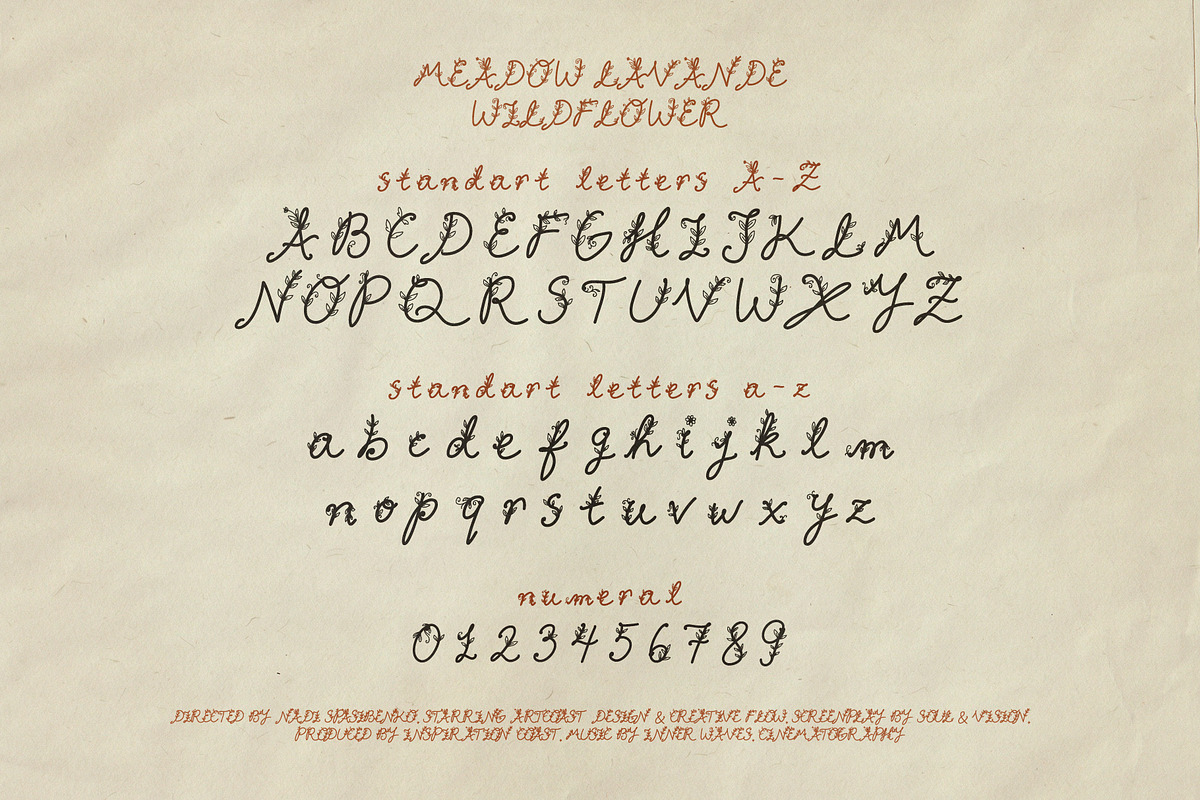 MEADOW LAVANDE
WILDFLOWER
standart letters A-Z
ABCDEFGHIJKLM
NOPQRSTUVWXYZ
standart letters a-z
abcdefghijklm
nopqrstuvwxyz
numeral
0123456789
DIRECTED BY NADI SPASIBENKO. STARRING ARTCOAST DESIGN & CREATIVE FLOW. SCREENPLAY BY SOUL & VISION.
PRODUCED BY INSPIRATION COAST. MUSIC BY INNER WAVES. CINEMATOGRAPHY